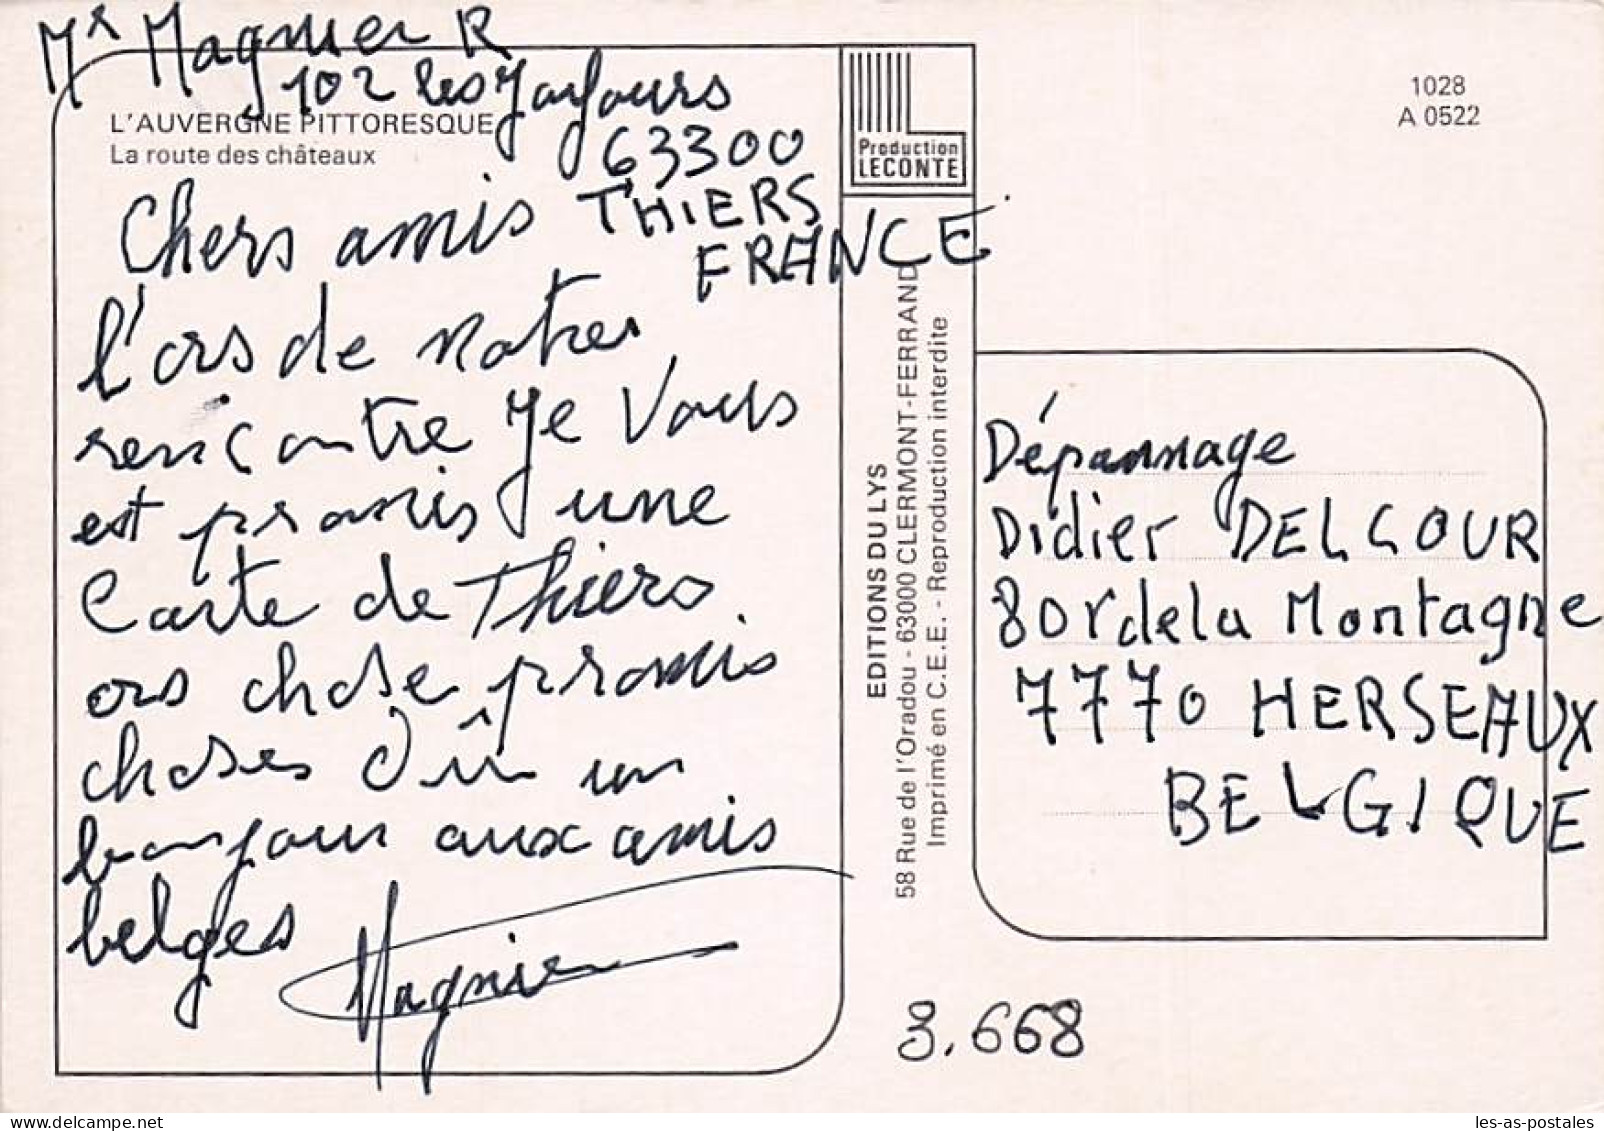 Mr Magnier R
102 les Jayfours
L'AUVERGNE PITTORESQUE
La route des châteaux
63300
THIERS
FRANCE
Chers amis
l'ors de notre
rencontre Je Vous
est promis une
Carte de Thiers
ors chose promis
choses Dûe un
bonjour aux amis
belges
Magnier
Production
LECONTE
EDITIONS DU LYS
58 Rue de l'Oradou - 63000 CLERMONT-FERRAND
Imprimé en C.E.E. - Reproduction interdite
1028
A 0522
Dépannage
Didier DELCOUR
8 or dela Montagne
7770 HERSEAUX
BELGIQUE
3.668
les-as-postales